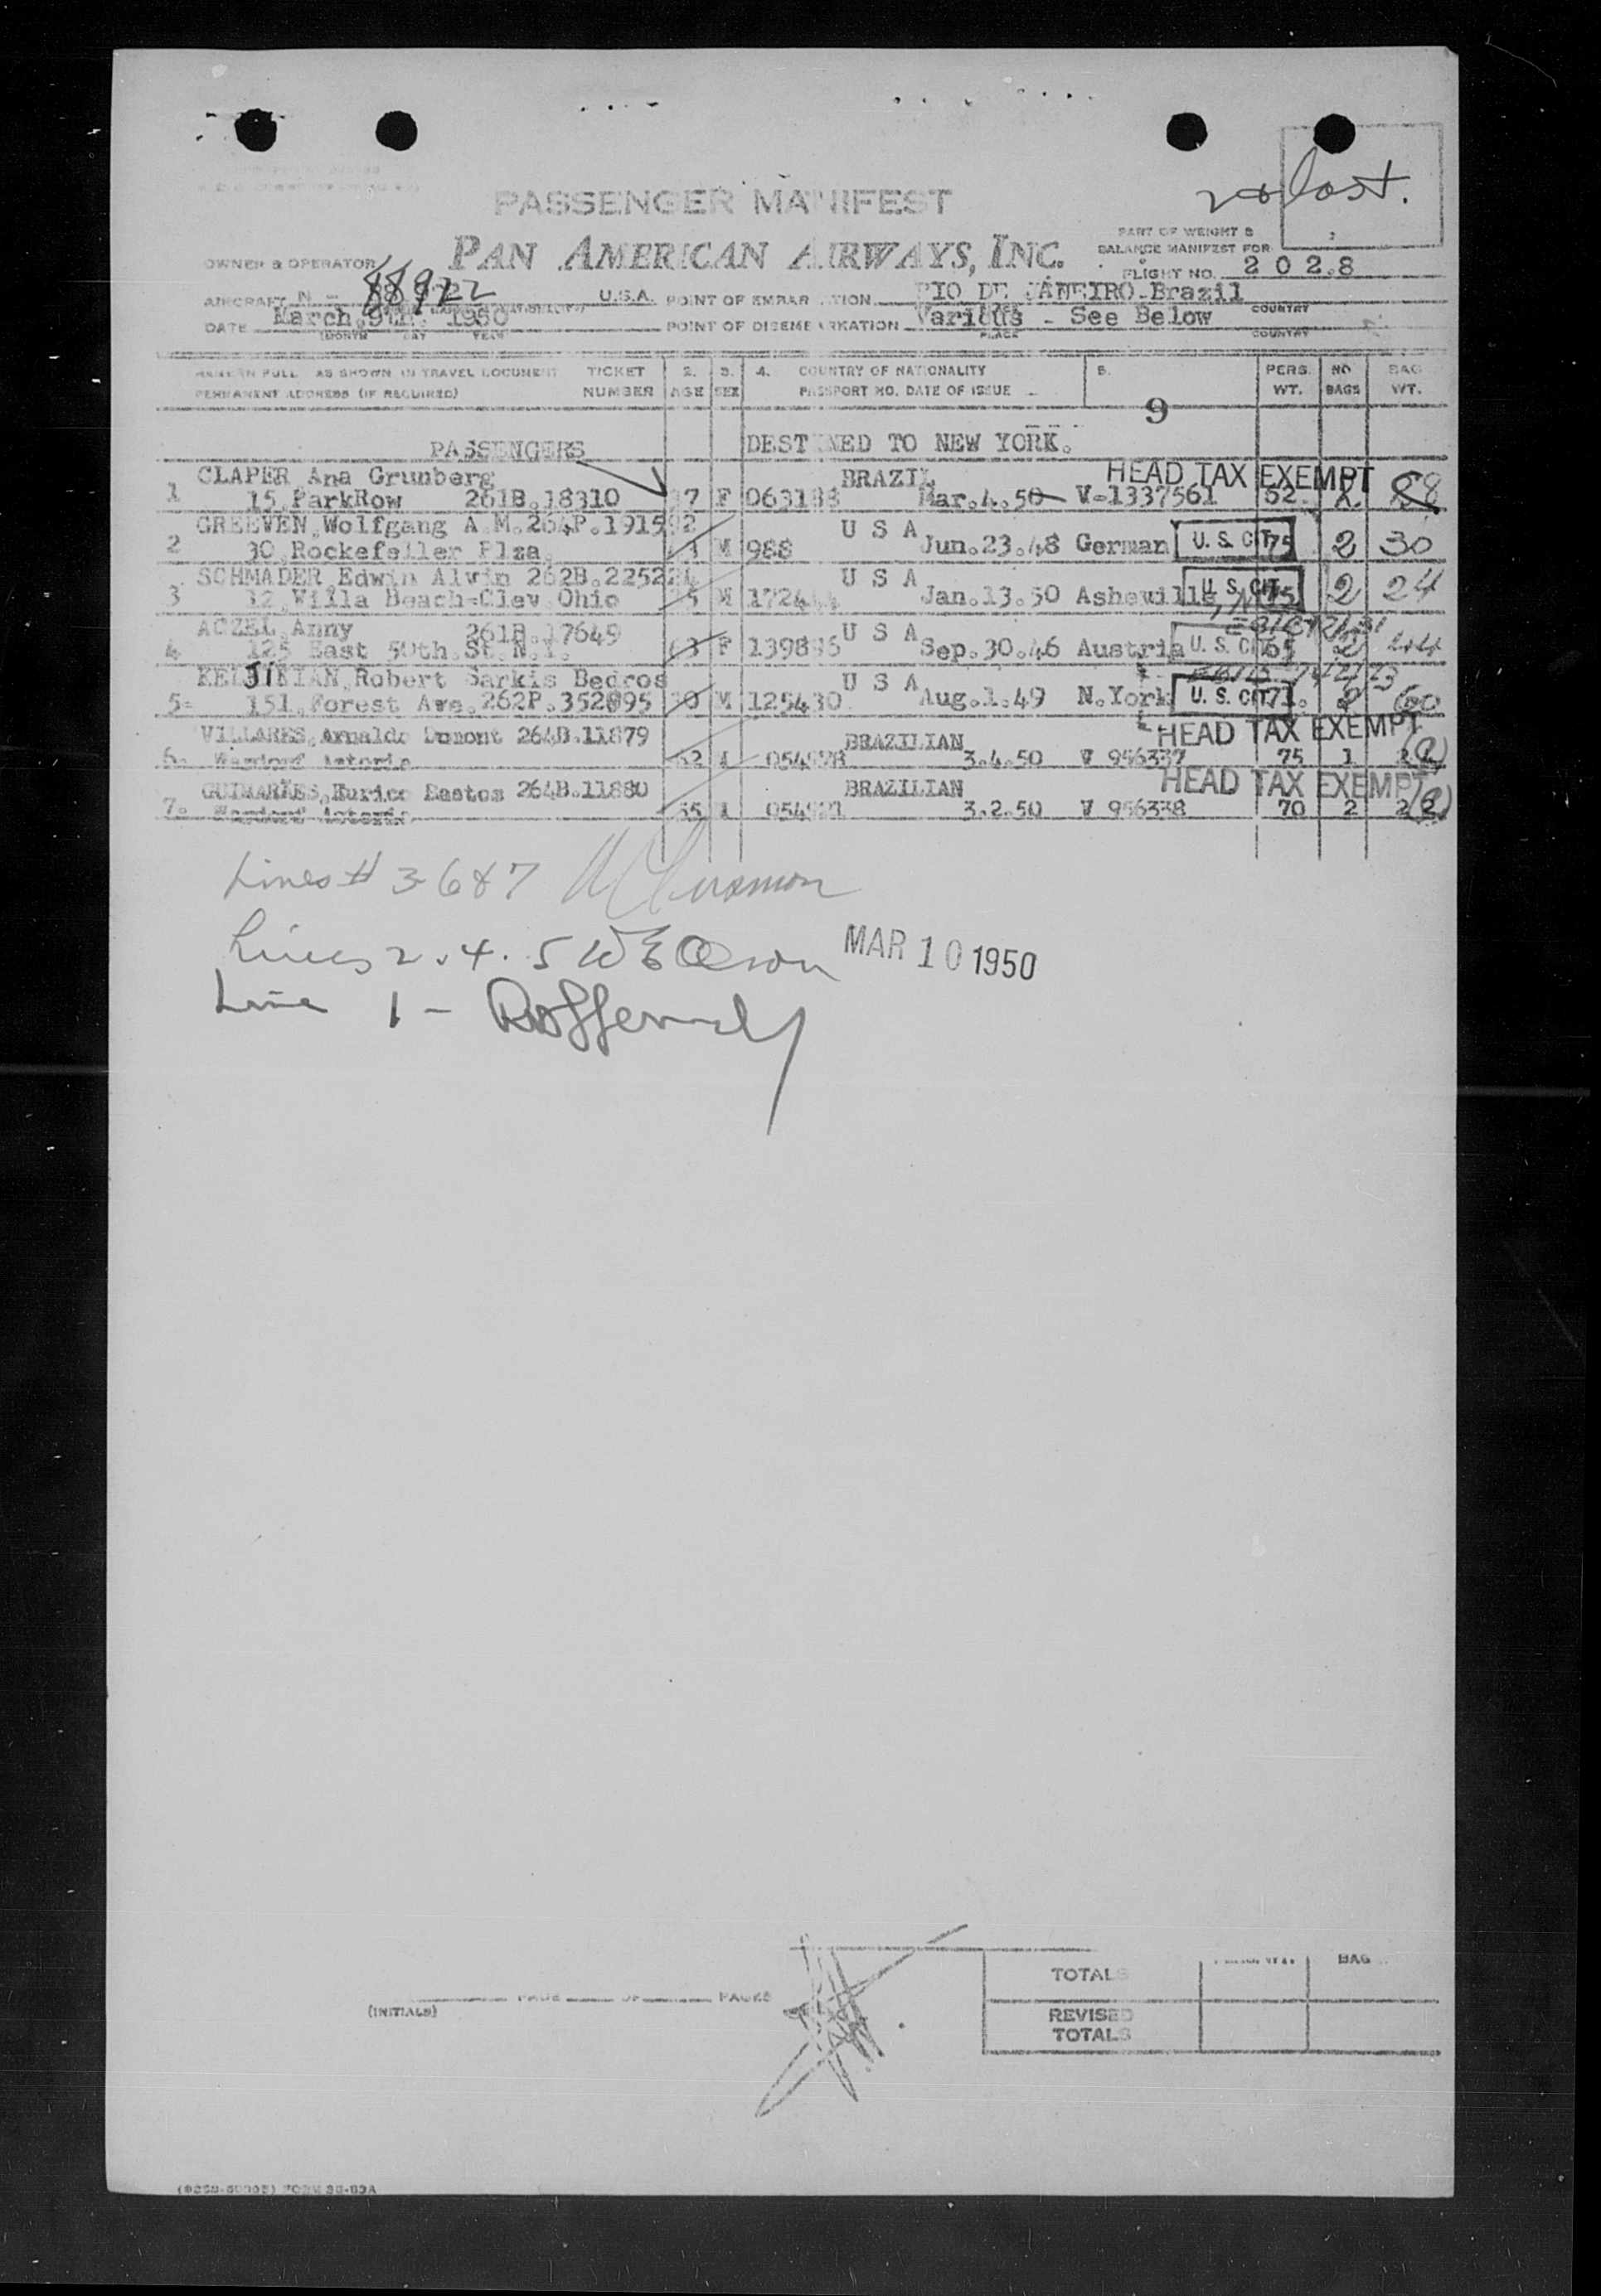 PASSENGER MANIFEST
last.
PAN AMERICAN AIRWAYS, INC.
PART OF WEIGHT &
BALANCE MANIFEST FOR
OWNER & OPERATOR
FLIGHT NO. 2028
AIRCRAFT N - 88922 U.S.A. POINT OF EMBARKATION RIO DE JANEIRO-Brazil
COUNTRY
DATE March.9th. 1950 POINT OF DISEMBARKATION Various - See Below
MONTH DAY YEAR PLACE COUNTRY
NAME IN FULL AS SHOWN IN TRAVEL DOCUMENT TICKET 2. 3. 4. COUNTRY OF NATIONALITY 5. PERS. NO BAG
PERMANENT ADDRESS (IF REQUIRED) NUMBER AGE SEX PASSPORT NO. DATE OF ISSUE WT. BAGS WT.
9
PASSENGERS DESTINED TO NEW YORK.
CLAPER, Ana Grunberg BRAZIL HEAD TAX EXEMPT
1 15,ParkRow 261B.18310 37 F 063188 Mar.4.50 V-1337561 52. 2. 28
GREEVEN,Wolfgang A.M.264P.191592 U S A
2 30,Rockefeller Plza. M 988 Jun.23.48 German U. S. CIT. 75 2 30
SCHMADER,Edwin Alvin 262B.225224 U S A
3 12,Villa Beach=Clev.Ohio M 172444 Jan.13.50 Asheville, U. S. CIT. 75 2 24
ACZEL,Anny 261B.17649 U S A
4. 125 East 50th.St.N.Y. 63 F 139886 Sep.30.46 Austria U. S. CIT. 65 2 44
KELJIKIAN,Robert Sarkis Bedros U S A
5= 151,Forest Ave.262P.352895 M 125430 Aug.1.49 N.York U. S. CIT. 71. 2 60
VILLARES,Arnaldo Dumont 264B.11879 BRAZILIAN HEAD TAX EXEMPT
6. Waldorf Astoria 3.4.50 V 956337 75 1
GUIMARÃES,Eurico Bastos 264B.11880 BRAZILIAN HEAD TAX EXEMPT
7. Waldorf Astoria 3.2.50 V 956338 70 2
Lines # 3-6&7
Lines 2.4.5 MAR 10 1950
Line 1 -
TOTALS BAG
(INITIALS) PAGE OF PAGES
REVISED
TOTALS